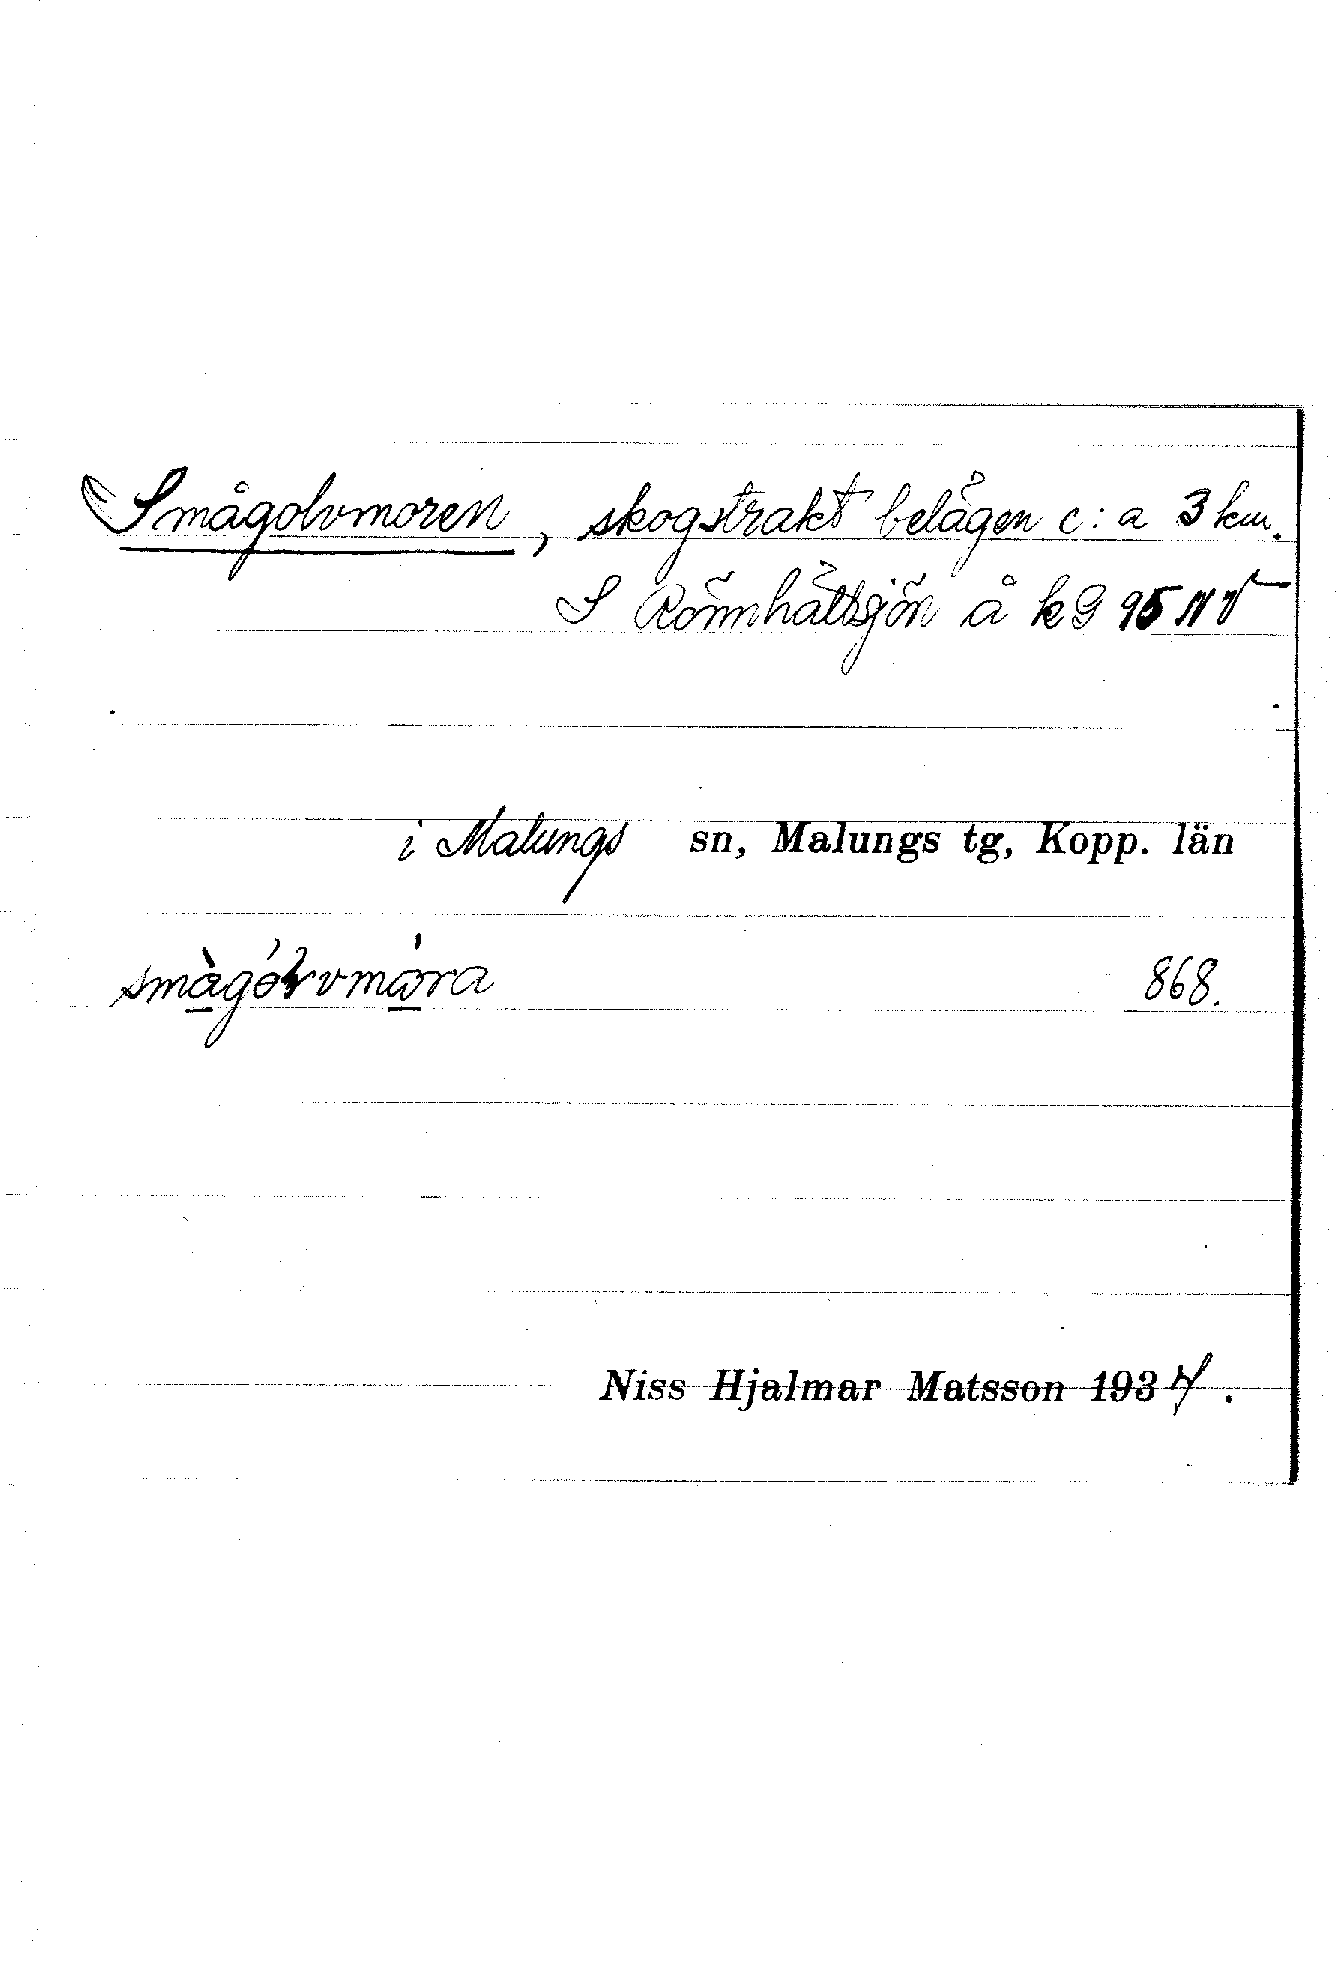 Smågolvmoren, skogstrakt belägen c:a 3 km.
S Rönnhättsjön å kG 95 NV
i Malungs sn, Malungs tg, Kopp. län
868.
Niss Hjalmar Matsson 1937.